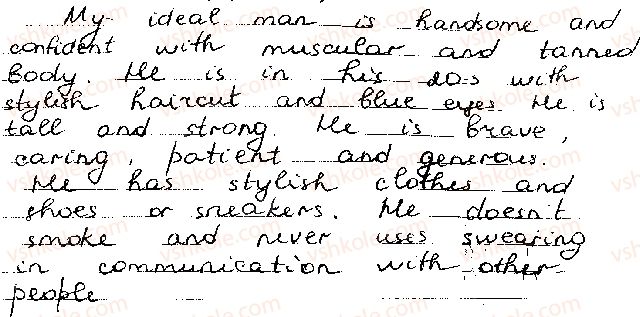 My ideal man is handsome and
confident with muscular and tanned
body. He is in his 20-s with
stylish haircut and blue eyes. He is
tall and strong. He is brave,
caring, patient and generous.
He has stylish clothes and
shoes or sneakers. He doesn't
smoke and never uses swearing
in communication with other
people